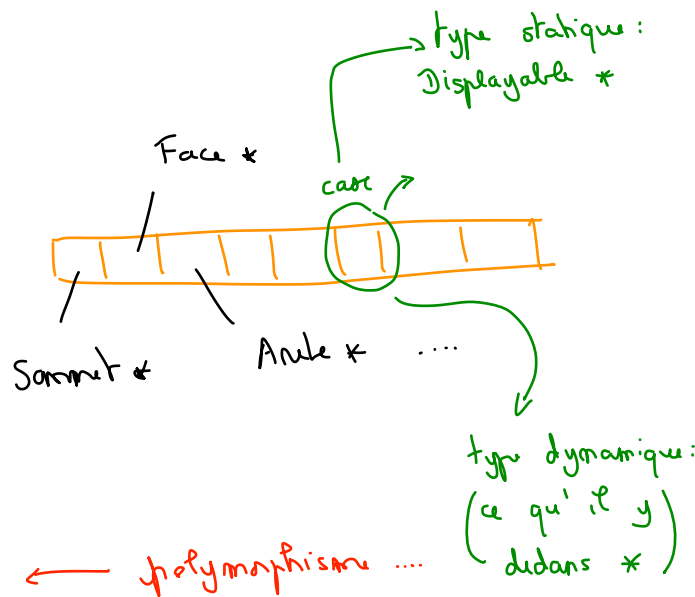 type statique:
Displayable *
Face *
case
Sommet *
Arete *
....
type dynamique:
(ce qu'il y
dedans *)
polymorphisme ....